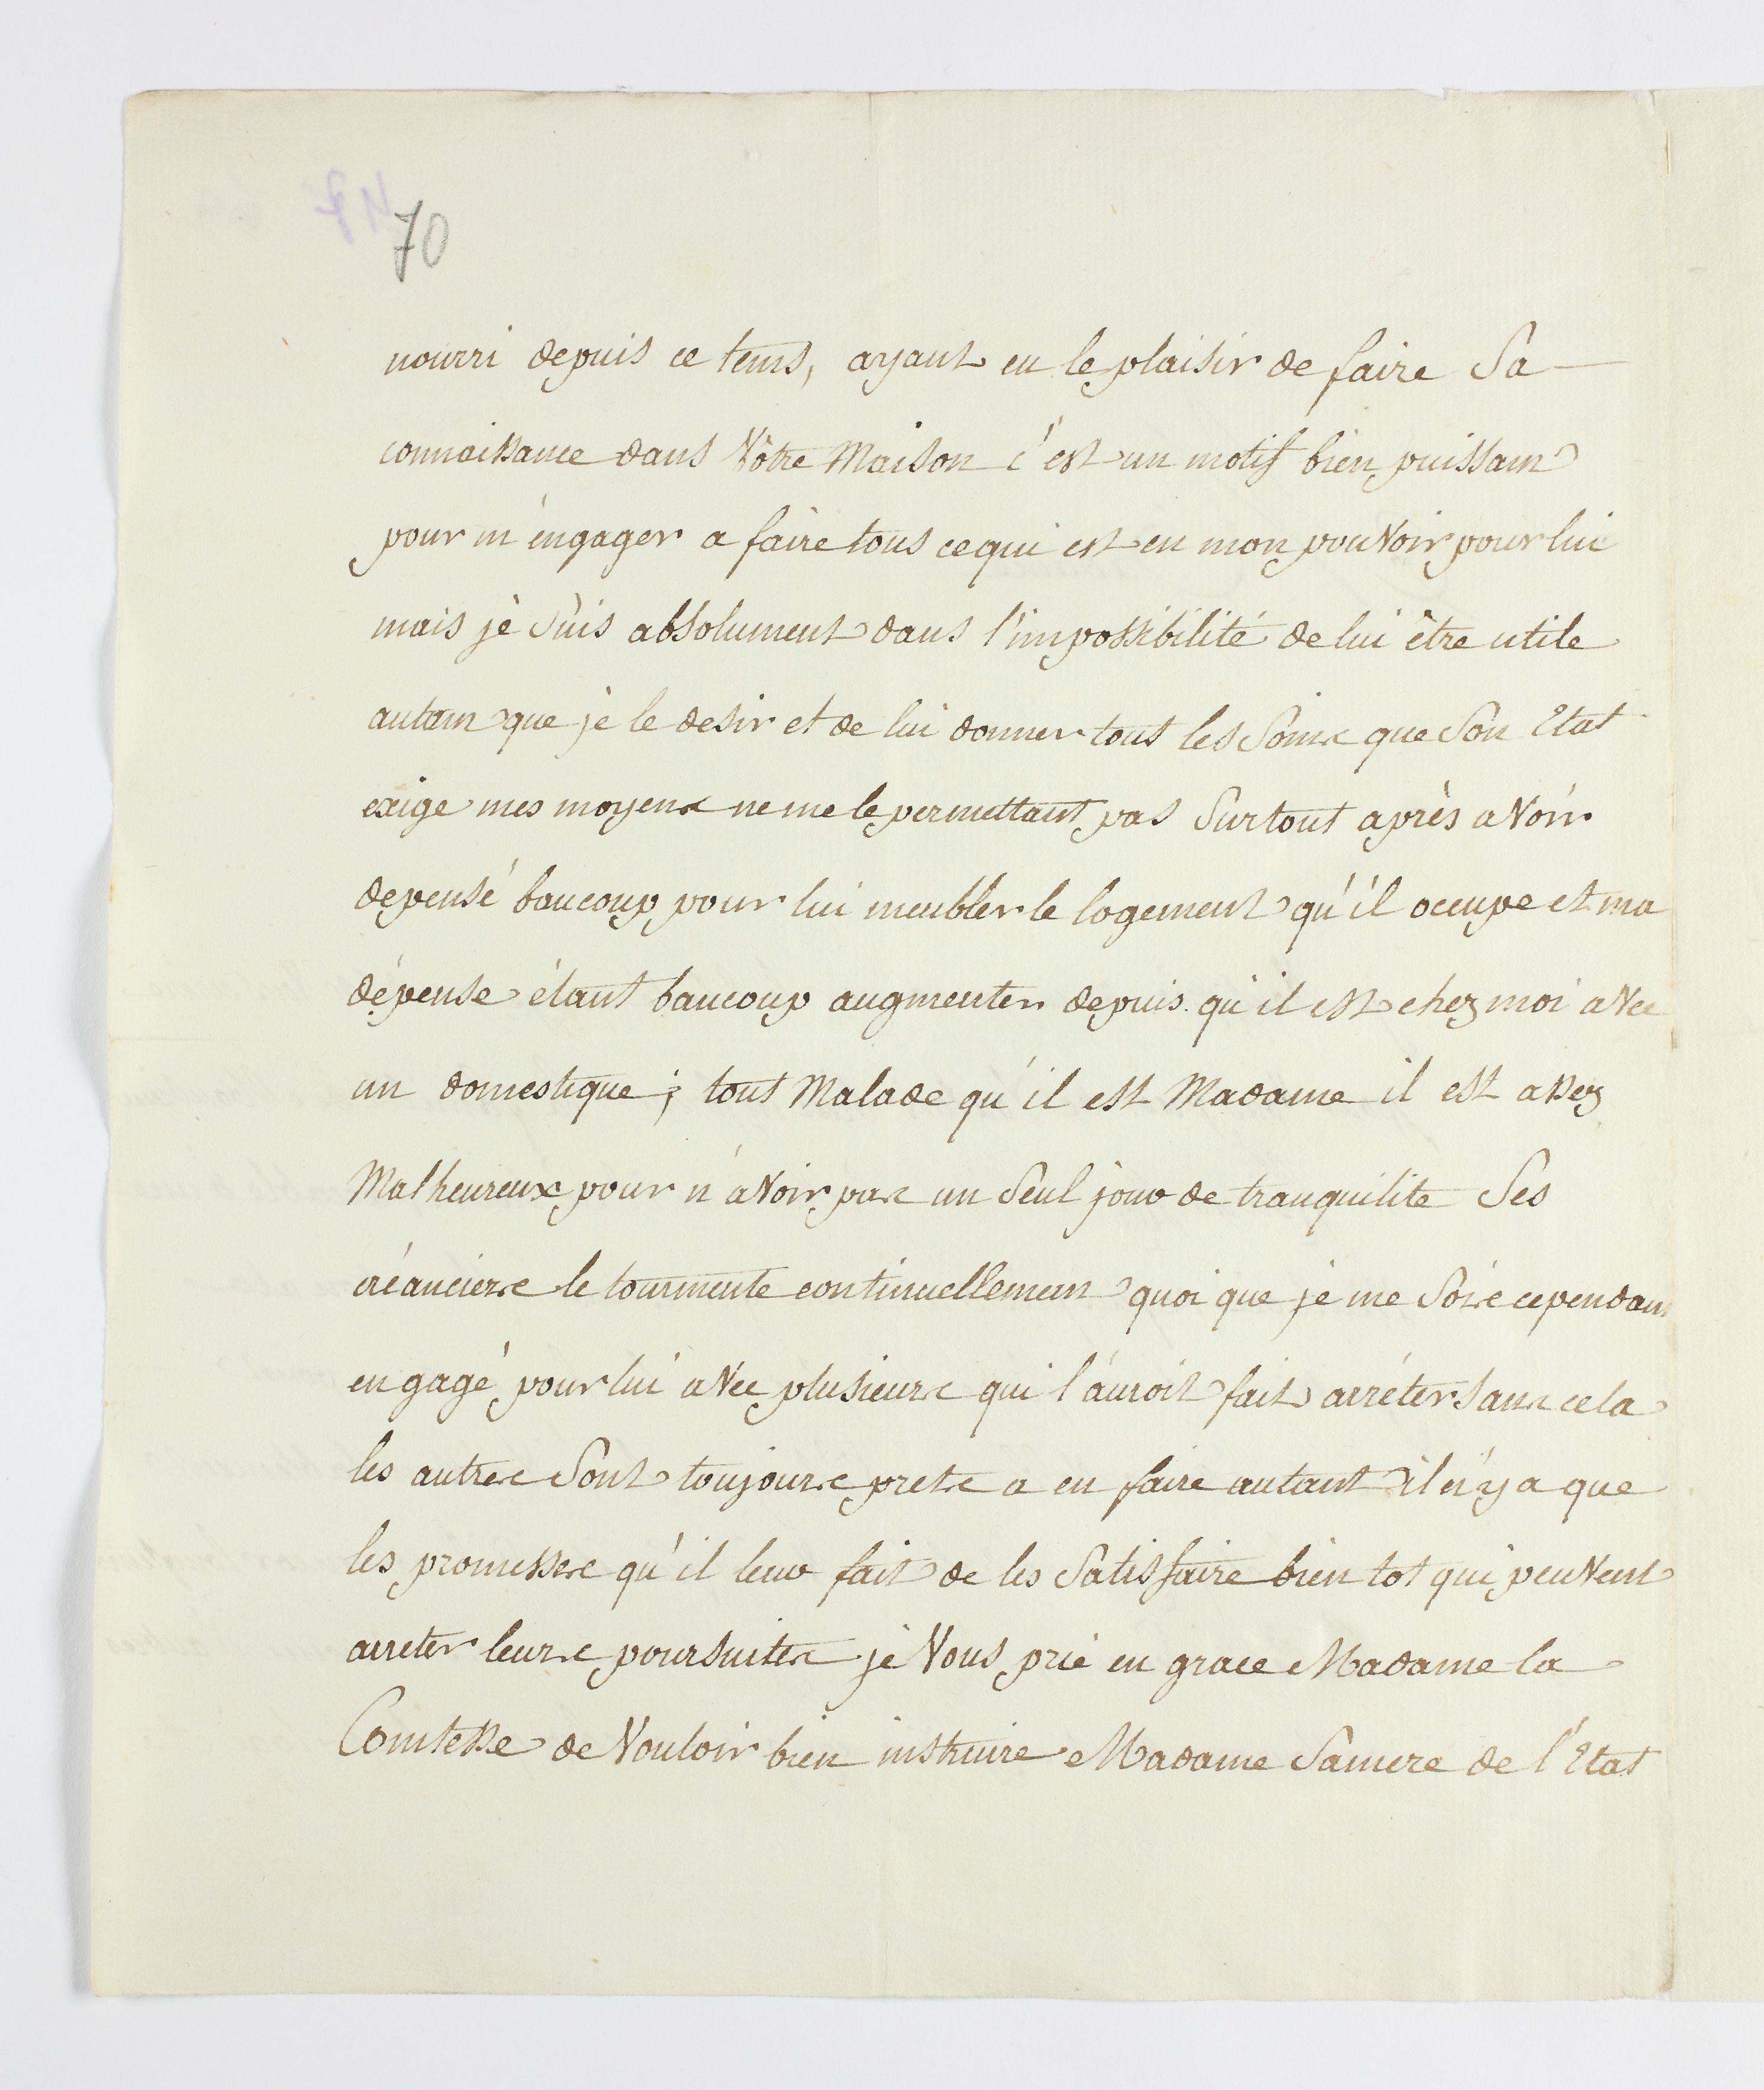 70
nourri depuis ce tems, ayant eu le plaisir de faire Sa
connaissance dans Vôtre Maison c'est un motif bien puissant
pour m'éngager a faire tous ce qui est en mon pouVoir pour lui
mais je suis absolument dans l'impossibilité de lui être utile
autant que je le desir et de lui donner tout les Soins que Son Etat
exige mes moyens ne me le permettant pas Surtout après aVoir
depensé baucoup pour lui meubler le logement qu'il occupe et ma
dépense étant baucoup augmenter depuis qu'il est chez moi aVec
un domestique; tout Malade qu'il est Madame il est assez
Malheureux pour n'aVoir pas un Seul jour de tranquilite Ses
créanciers le tourmente continuellement quoi que je me Sois cependant
engagé pour lui aVec plusieurs qui l'auroit fait arréter sans cela
les autres Sont toujours prets a en faire autant il n'y a que
les promesses qu'il leur fait de les Satisfaire bien tot qui peuVent
arreter leurs poursuites je Vous prie en grace Madame la
Comtesse de Vouloir bien instruire Madame Sa mere de l'Etat